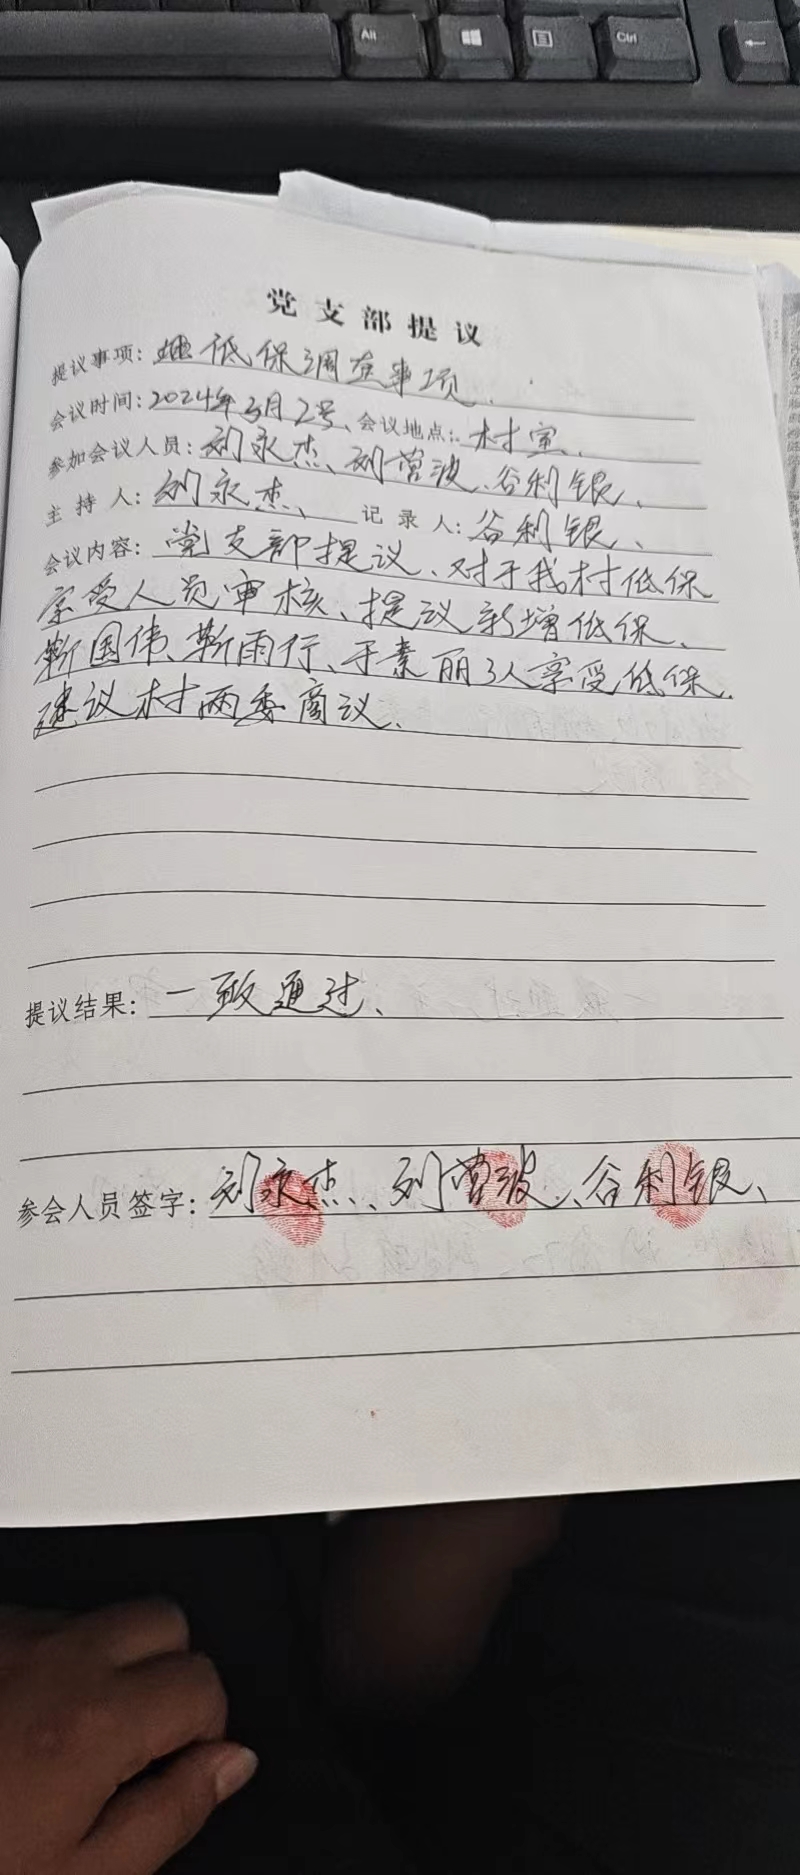 Alt
Ctrl
党支部提议
提议事项：低保调查事项、
会议时间：2024年3月2号、会议地点：村室、
参加会议人员：刘永杰、刘营波、谷利银、
主持人：刘永杰、 记录人：谷利银、
会议内容：党支部提议、对于我村低保
享受人员审核、提议新增低保、
靳国伟、靳雨行、于素丽3人享受低保、
建议村两委商议、
提议结果：一致通过、
参会人员签字：刘永杰、刘营波、谷利银、